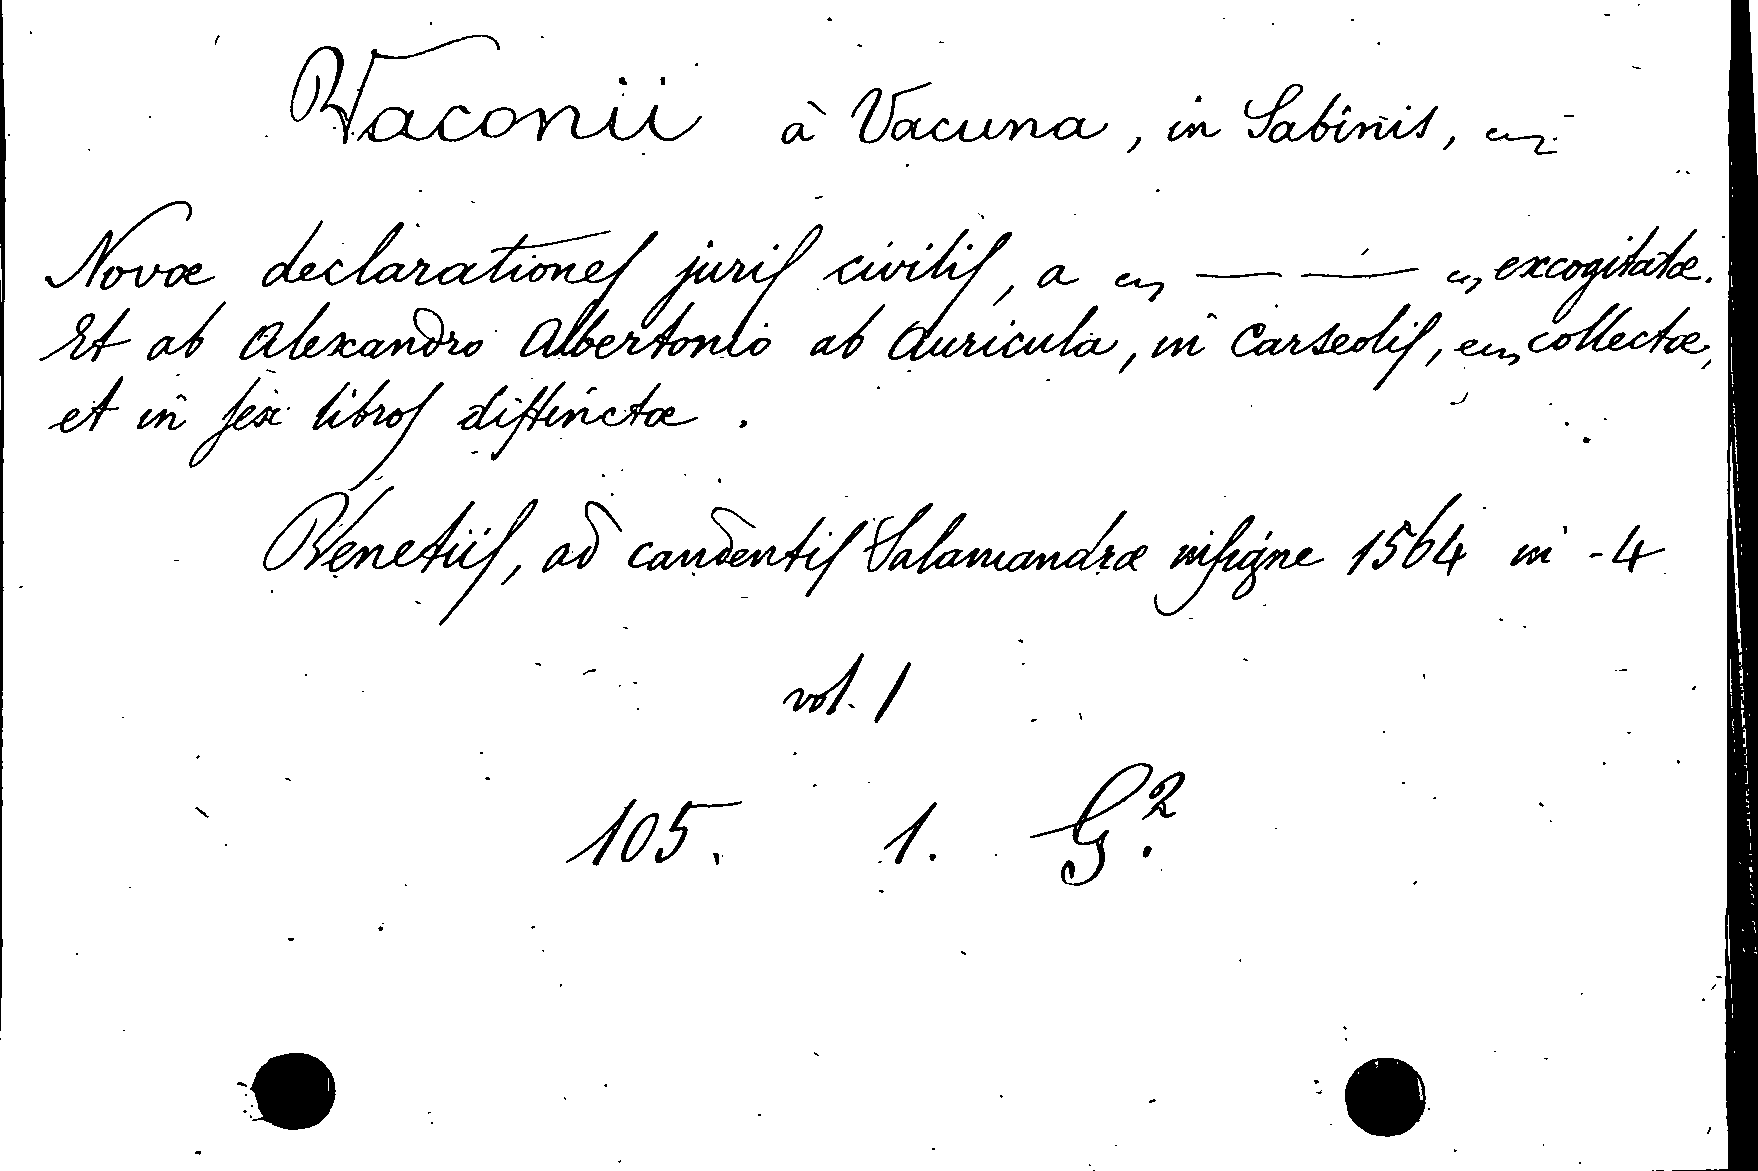 Vaconii à Vacuna, in Sabinis,
Novæ declarationes juris civilis, a — — excogitatæ.
Et ab Alexandro Albertonio ab Auricula, in Carseolis, collectæ,
et in sex libros distinctæ.
Venetiis, ad candentis Salamandræ insigne 1564 in -4
vol. 1
105. 1. G².